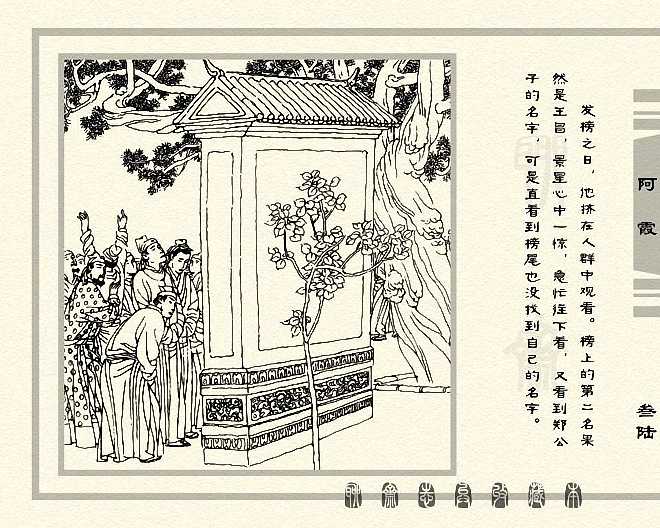 发榜之日，他挤在人群中观看。榜上的第二名果
然是王昌，景星心中一惊，急忙往下看，又看到郑公
子的名字，可是直看到榜尾也没找到自己的名字。
阿霞
叁陆